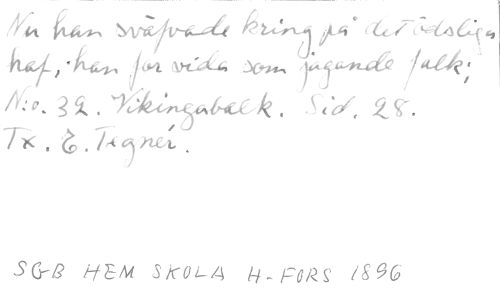 Nu han sväfvade kring på det ödsliga
haf, han for vida som jagande falk;
N:o. 32. Vikingabalk. Sid. 28.
Tx. E. Tegnér.
SGB HEM SKOLA H-FORS 1896